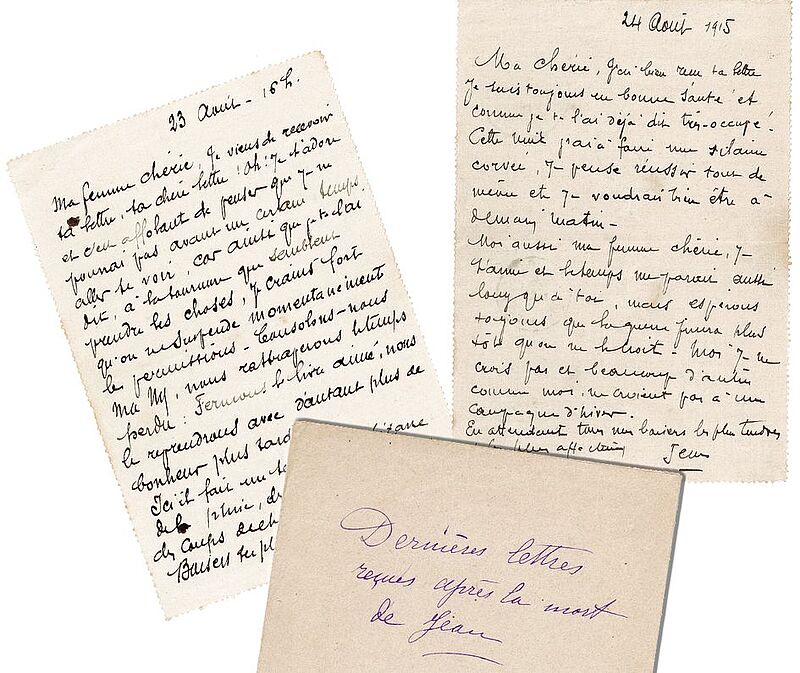 23 Août - 16 h.
Ma femme chérie, Je viens de recevoir
ta lettre, ta chère lettre ! Oh ! Je t'adore
et c'en affolant de penser que je ne
pourrai pas avant un certain temps
aller te voir, car ainsi que je te l'ai
dit, à la tournure que semblent
prendre les choses, je crains fort
qu'on ne suspende momentanément
les permissions - Consolons-nous
Ma, nous rattraperons le temps
perdu : Fermons le livre aimé, nous
le reprendrons avec d'autant plus de
bonheur plus tard
Ici il fait un
de la pluie,
des coups de
Baisers
24 Août 1915
Ma chérie, J'ai bien reçu ta lettre
Je suis toujours en bonne santé et
comme je te l'ai déjà dit très-occupé !
Cette nuit j'ai à faire une
corvée, je pense réussir tout de
même et je voudrais bien être à
demain matin -
Moi aussi ma femme chérie, je
t'aime et le temps me parait aussi
long qu'à toi, mais espérons
toujours que la guerre finira plus
tôt qu'on ne le croit - Moi je ne
crois pas et beaucoup d'autres
comme moi, ne croient pas à une
campagne d'hiver.
En attendant tous mes baisers les plus tendres
les plus affectueux Jean
Dernières lettres
reçues après la mort
de Jean